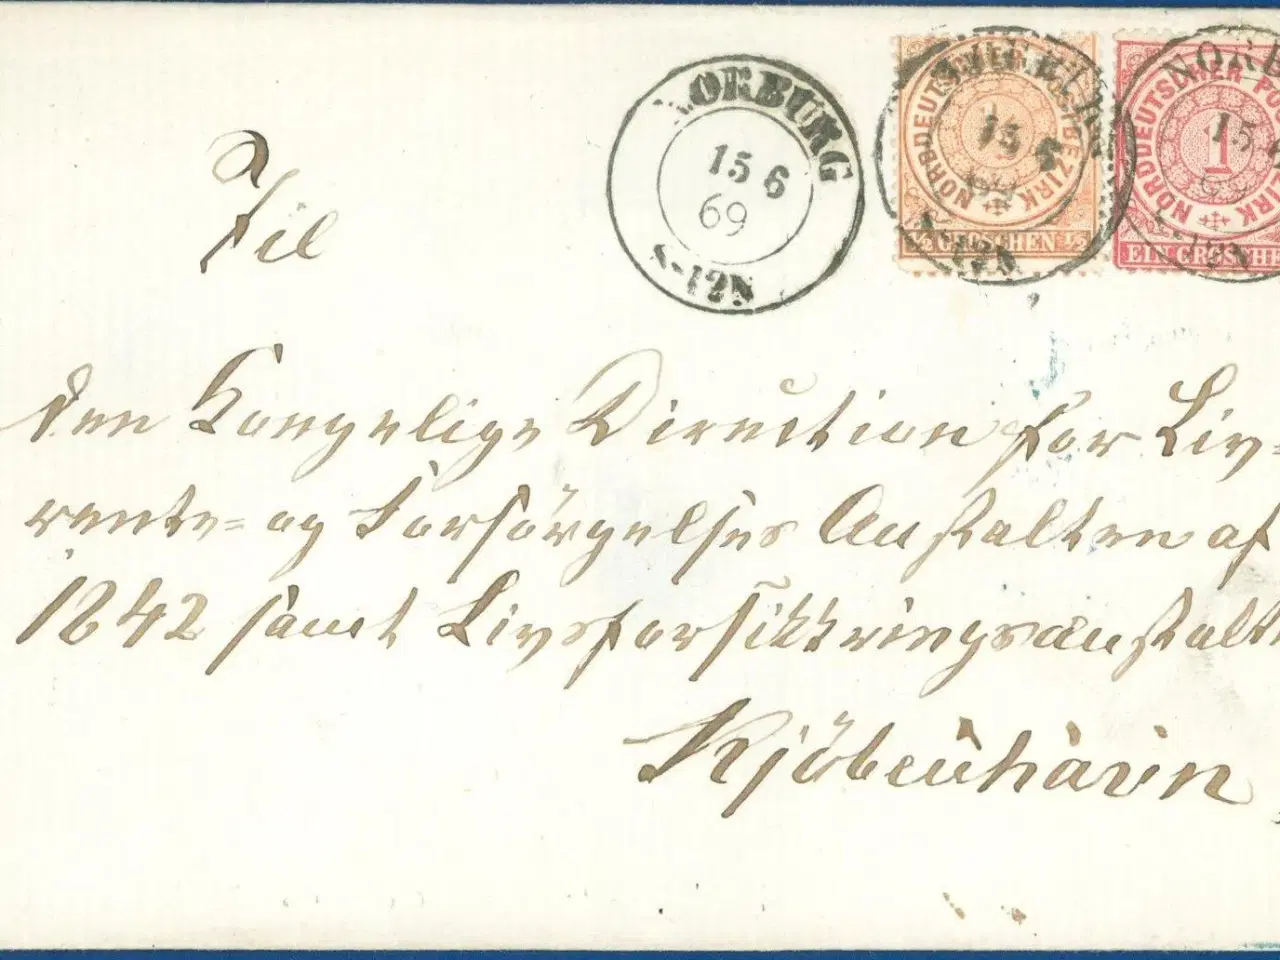 NORBURG
15 6
69
8-12N
15 6
NORDDEUTSCHER POSTBEZIRK
½ GROSCHEN ½
NORB
15
69
NORDDEUTSCHER
1
EIN GROSCHE
Til
den Kongelige Direction for Liv=
rente= og Forsörgelses Anstalten af
1842 samt Livsforsikkringsanstalt
Kjöbenhavn